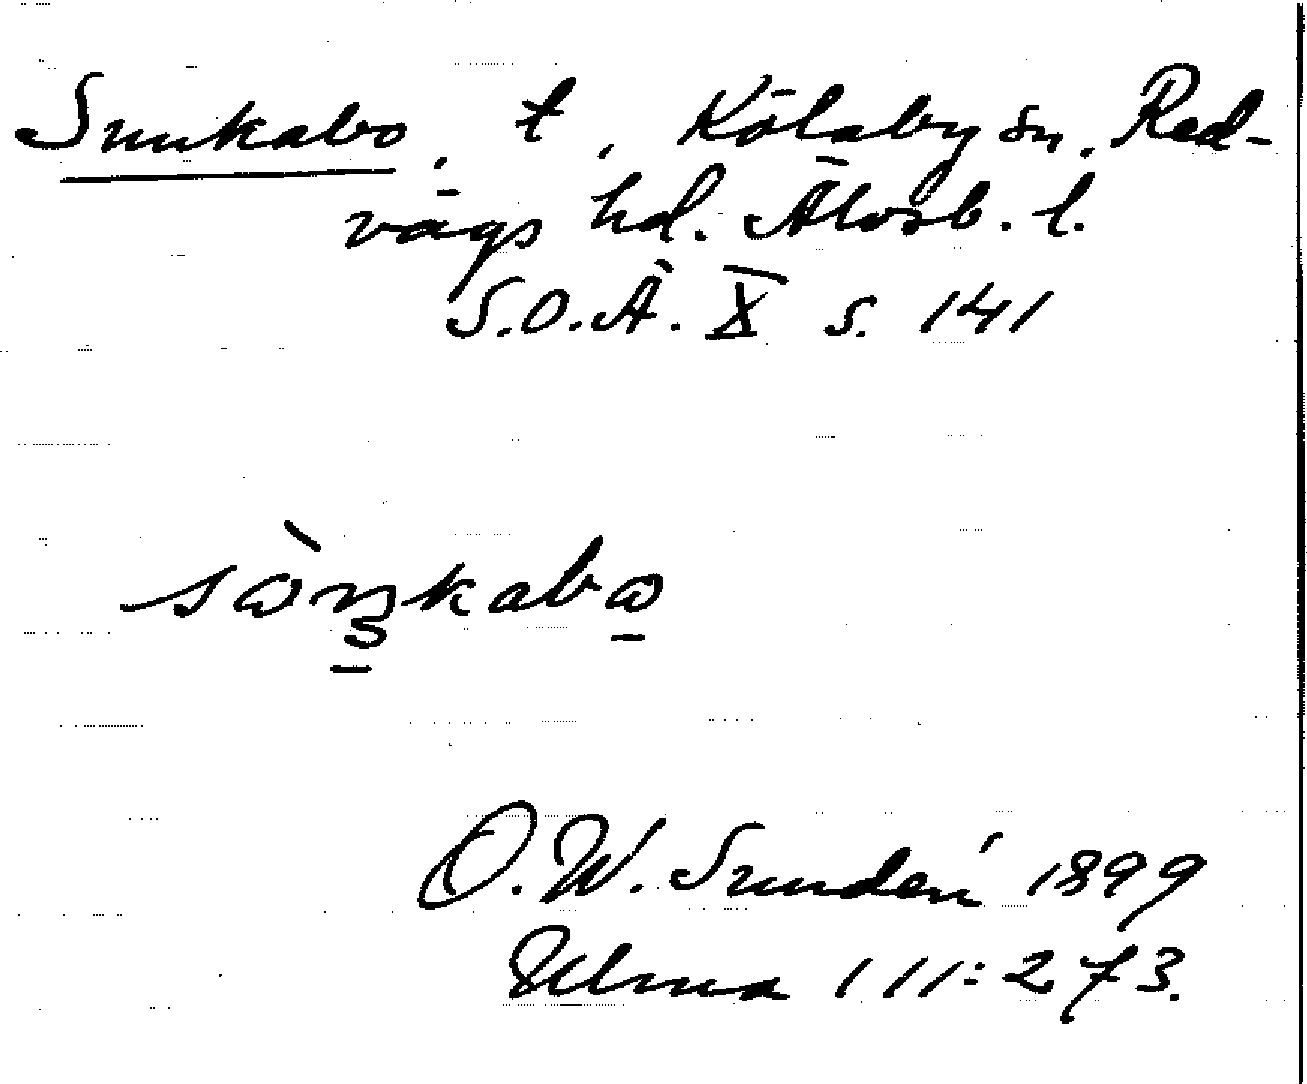 Sunkabo, t, Kölaby sn. Red-
vägs hd. Älvsb. l.
S.O.Ä. X s. 141
O.W. Sundén 1899
Ulma 111:273.